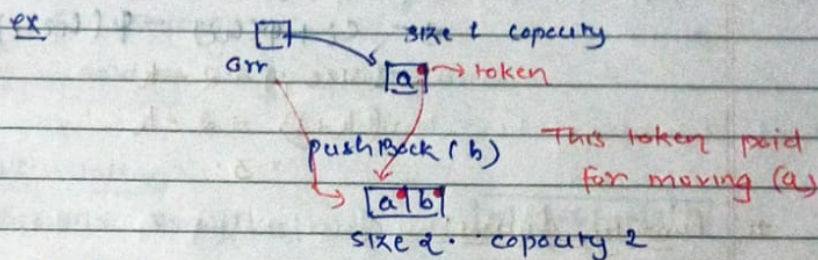 ex
size 1 capacity
arr
a → token
pushBack (b)
This token paid
for moving (a)
a b
size 2. capacity 2